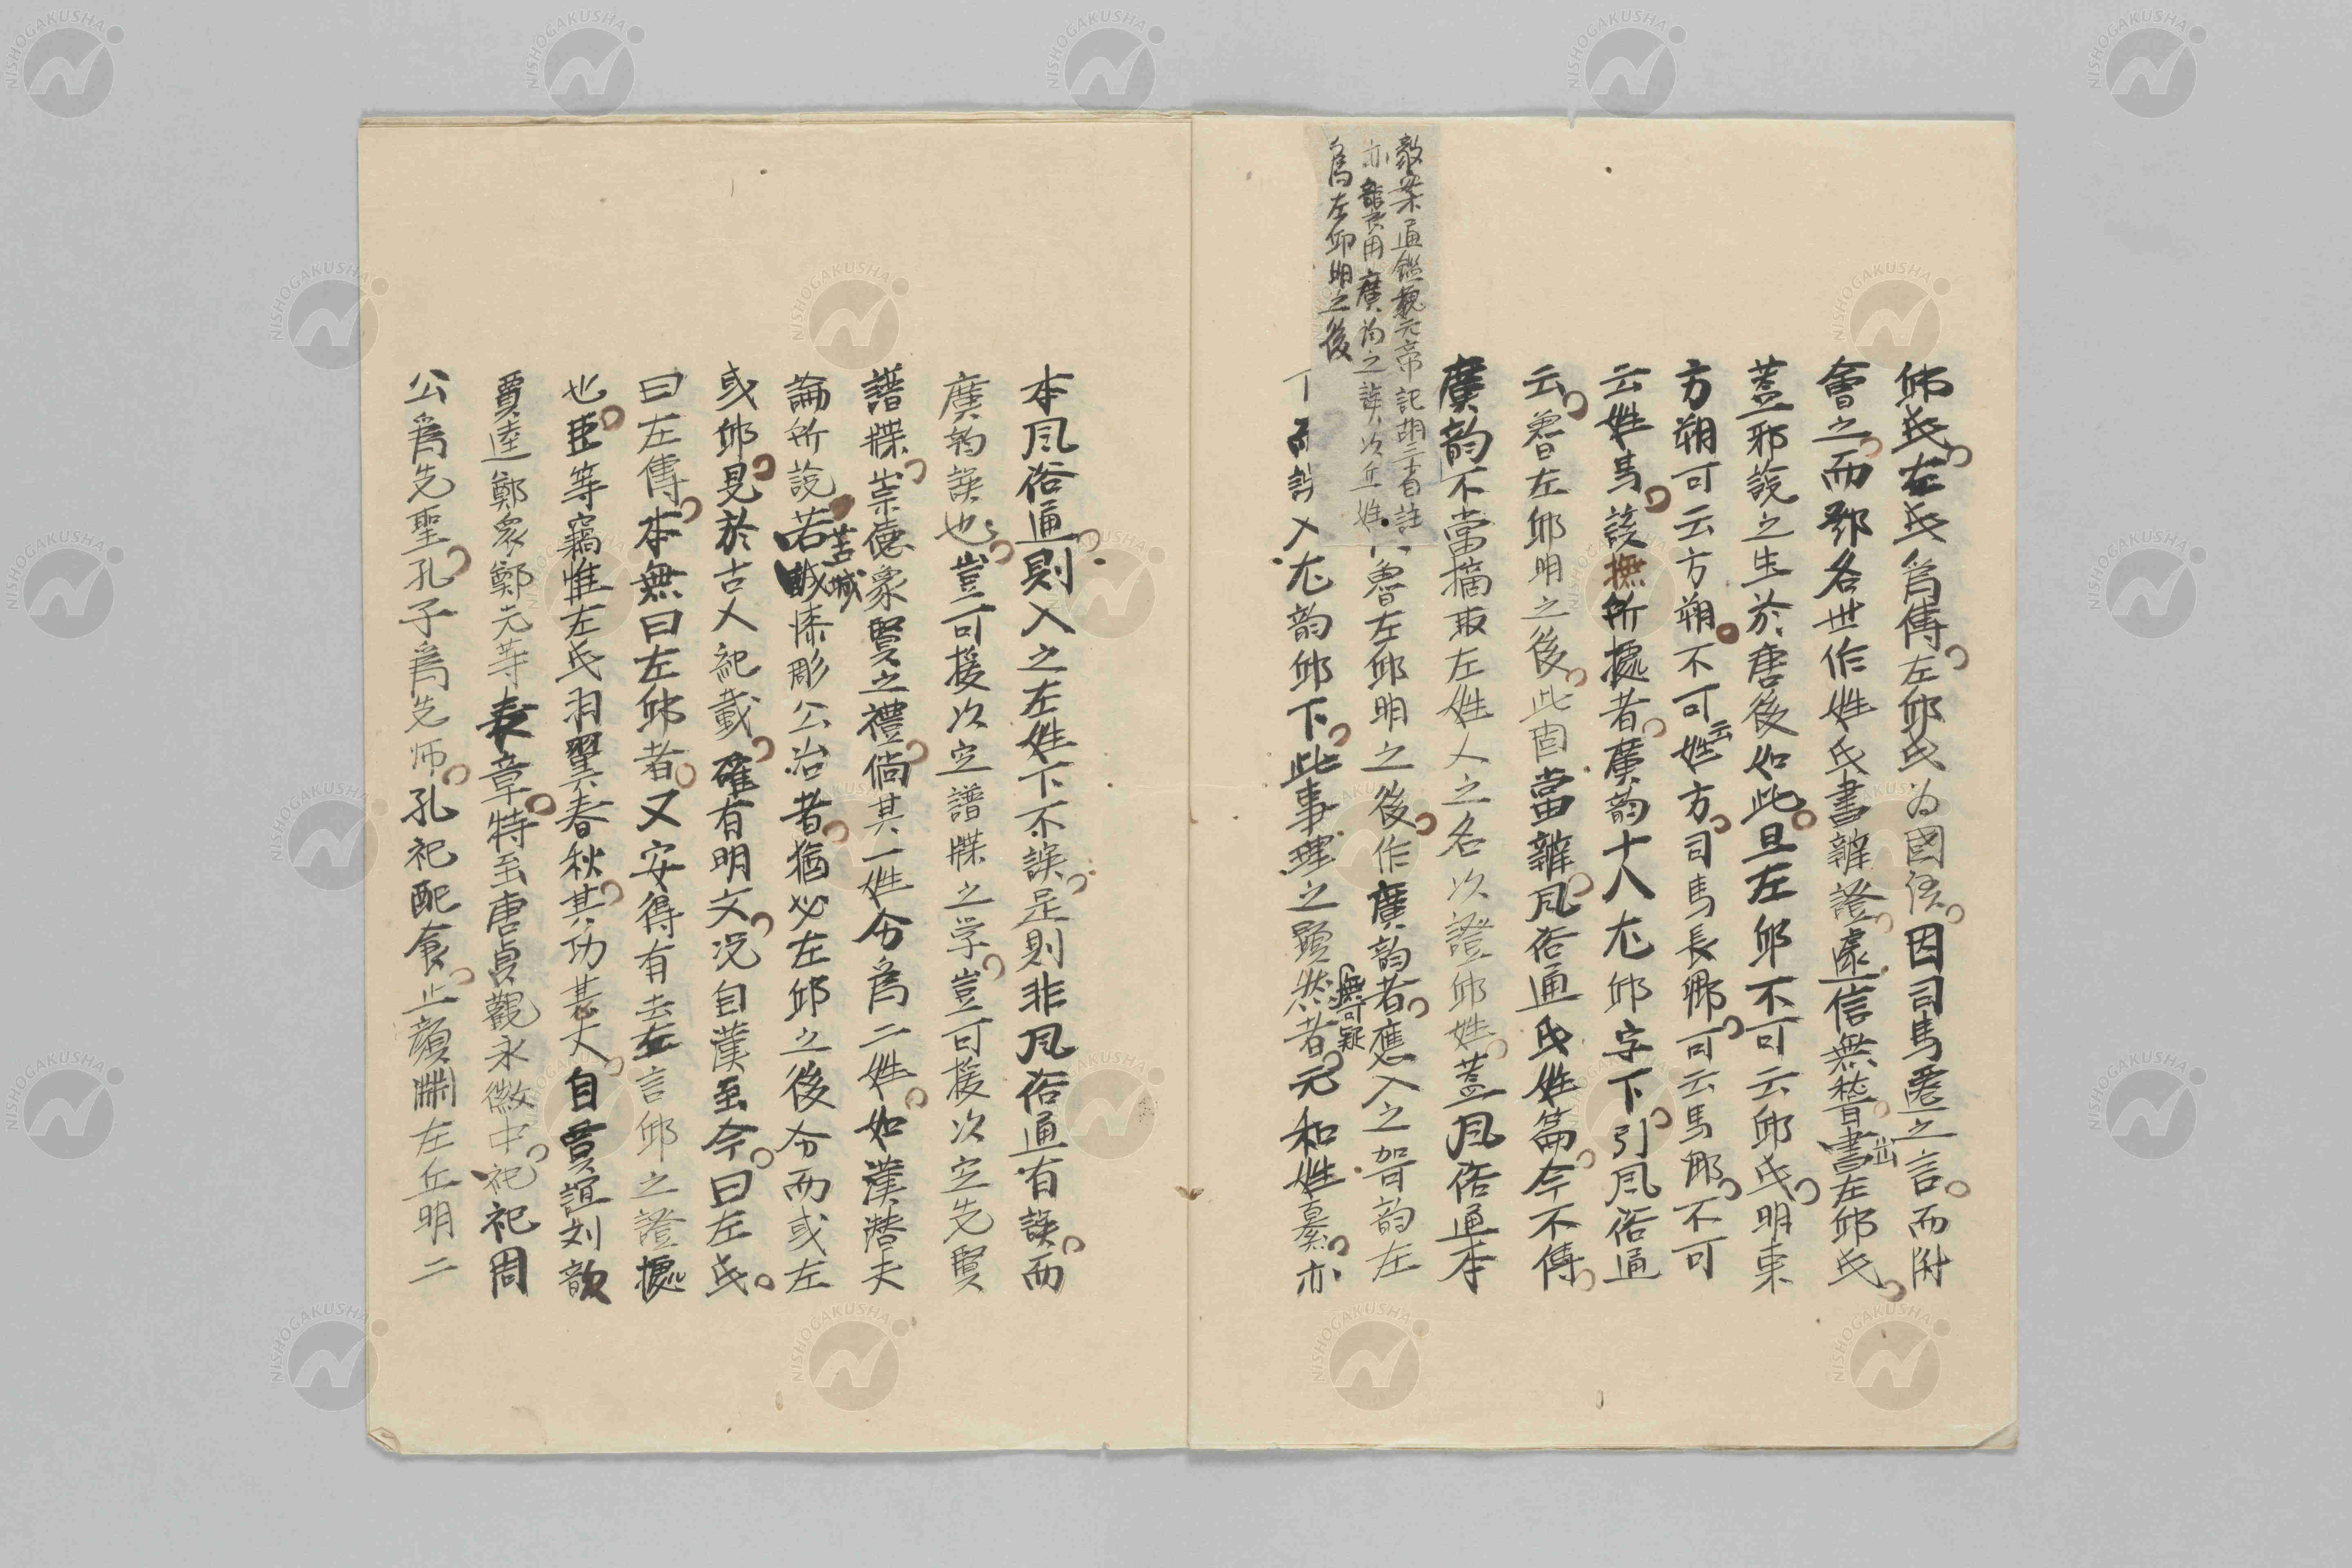 邱氏左氏爲傳左邱氏为國語因司馬遷之言而附
會之而鄧名世作姓氏書辨證遽信無稽書出左邱氏
蓋邪說之生於唐後如此且左邱不可云邱氏明東
方朔可云方朔不可云姓方司馬長卿可云馬卿不可
云姓馬該撫所據者廣韵十八尤邱字下引風俗通
云魯左邱明之後此固當辨風俗通氏姓篇今不傳
廣韵不當摘取左姓人之名以證邱姓蓋風俗通本
魯左邱明之後作廣韵者應入之哿韵左
而誤入尤韵邱下此事理之顯然無可疑者元和姓纂亦
敬案通鑑魏元帝記胡三省註
亦龍用廣韵之誤以丘姓
爲左邱明之後
本風俗通則入之左姓下不誤是則非風俗通有誤而
廣韵誤也豈可援以定譜牒之学豈可援以定先賢
譜牒崇德象賢之禮倘其一姓分爲二姓如漢潛夫
論所說若苦城漆彫公冶者猶必左邱之後分而或左
或邱見於古人記載確有明文況自漢至今曰左氏
曰左傳本無曰左邱者又安得有去左言邱之證據
也臣等竊惟左氏羽翼春秋其功甚大自賈誼刘歆
賈逵鄭衆鄭元等表章特至唐貞觀永徽中祀祀周
公爲先聖孔子爲先师孔祀配食止顏淵左丘明二